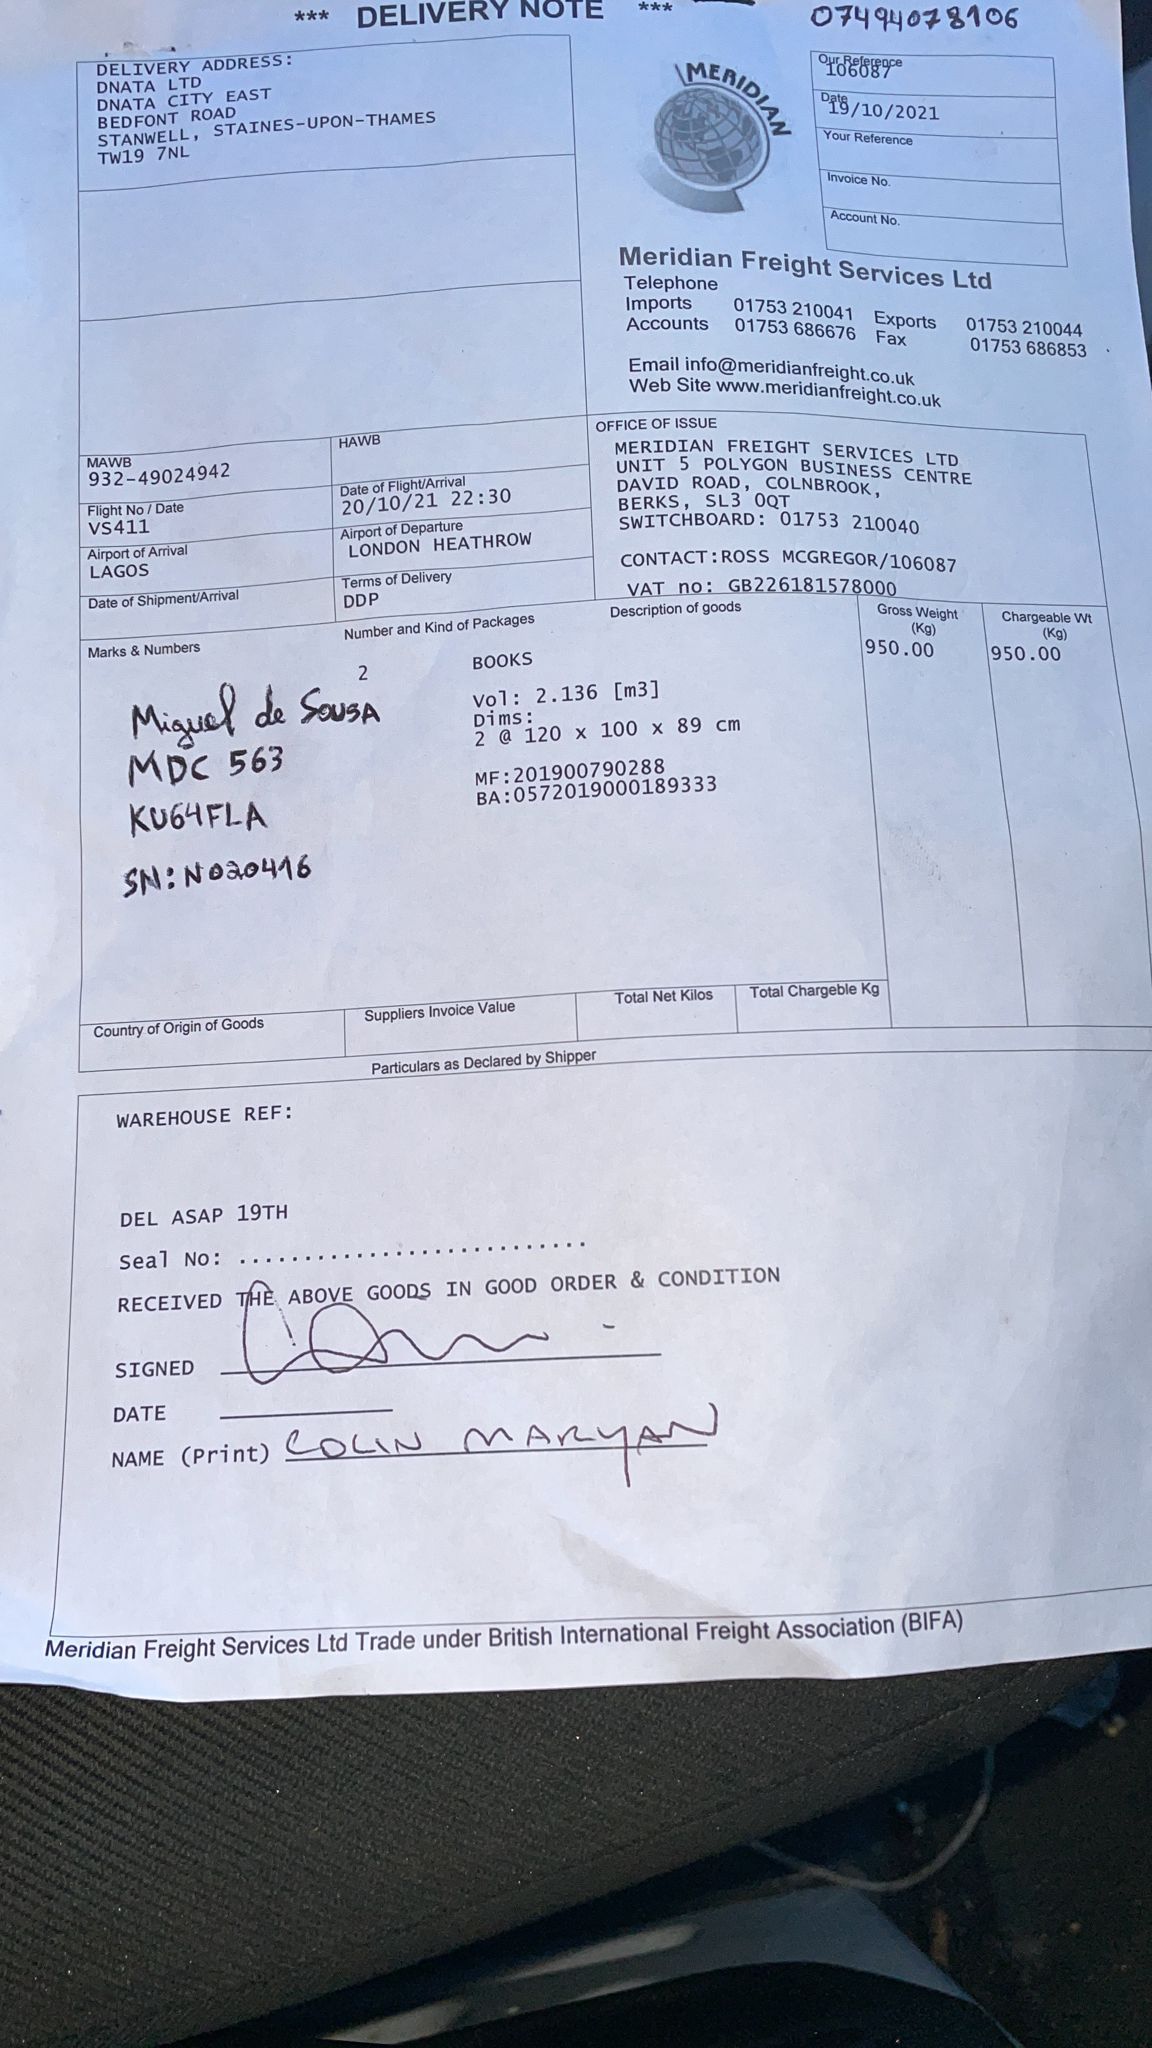 *** DELIVERY NOTE ***
07494078106
DELIVERY ADDRESS:
DNATA LTD
DNATA CITY EAST
BEDFONT ROAD
STANWELL, STAINES-UPON-THAMES
TW19 7NL
MERIDIAN
Our Reference
106087
Date
19/10/2021
Your Reference
Invoice No.
Account No.
Meridian Freight Services Ltd
Telephone
Imports 01753 210041 Exports 01753 210044
Accounts 01753 686676 Fax 01753 686853
Email info@meridianfreight.co.uk
Web Site www.meridianfreight.co.uk
MAWB
932-49024942
HAWB
Flight No / Date
VS411
Date of Flight/Arrival
20/10/21 22:30
Airport of Arrival
LAGOS
Airport of Departure
LONDON HEATHROW
Date of Shipment/Arrival
Terms of Delivery
DDP
OFFICE OF ISSUE
MERIDIAN FREIGHT SERVICES LTD
UNIT 5 POLYGON BUSINESS CENTRE
DAVID ROAD, COLNBROOK,
BERKS, SL3 0QT
SWITCHBOARD: 01753 210040
CONTACT:ROSS MCGREGOR/106087
VAT no: GB226181578000
Marks & Numbers Number and Kind of Packages Description of goods Gross Weight (Kg) Chargeable Wt (Kg)
2 BOOKS 950.00 950.00
Vol: 2.136 [m3]
Dims:
2 @ 120 x 100 x 89 cm
MF:201900790288
BA:0572019000189333
Miguel de Sousa
MDC 563
KU64FLA
SN:N020416
Country of Origin of Goods Suppliers Invoice Value Total Net Kilos Total Chargeble Kg
Particulars as Declared by Shipper
WAREHOUSE REF:
DEL ASAP 19TH
Seal No: ...........................
RECEIVED THE ABOVE GOODS IN GOOD ORDER & CONDITION
SIGNED
DATE
NAME (Print) COLIN MARYAN
Meridian Freight Services Ltd Trade under British International Freight Association (BIFA)